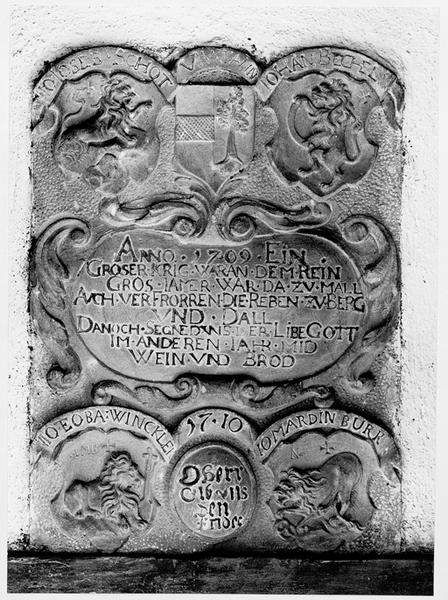 IOESEB·SCHOT
IOHAN BECHEL
ANNO·1709·EIN
GROSER·KRIG·WARAN·DEM·REIN
GROS·IAMER·WAR·DA·ZU·MALL
AUCH·VERFRORREN·DIE·REBEN·ZU·BERG
UND·DALL
DANOCH·SEGNED·UNS·DER·LIBE GOTT
IM·ANDEREN·IAHR·MID
WEIN·UND BROD
IO·EOBA:WINCKLE
17·10
IO·MARDIN BURR